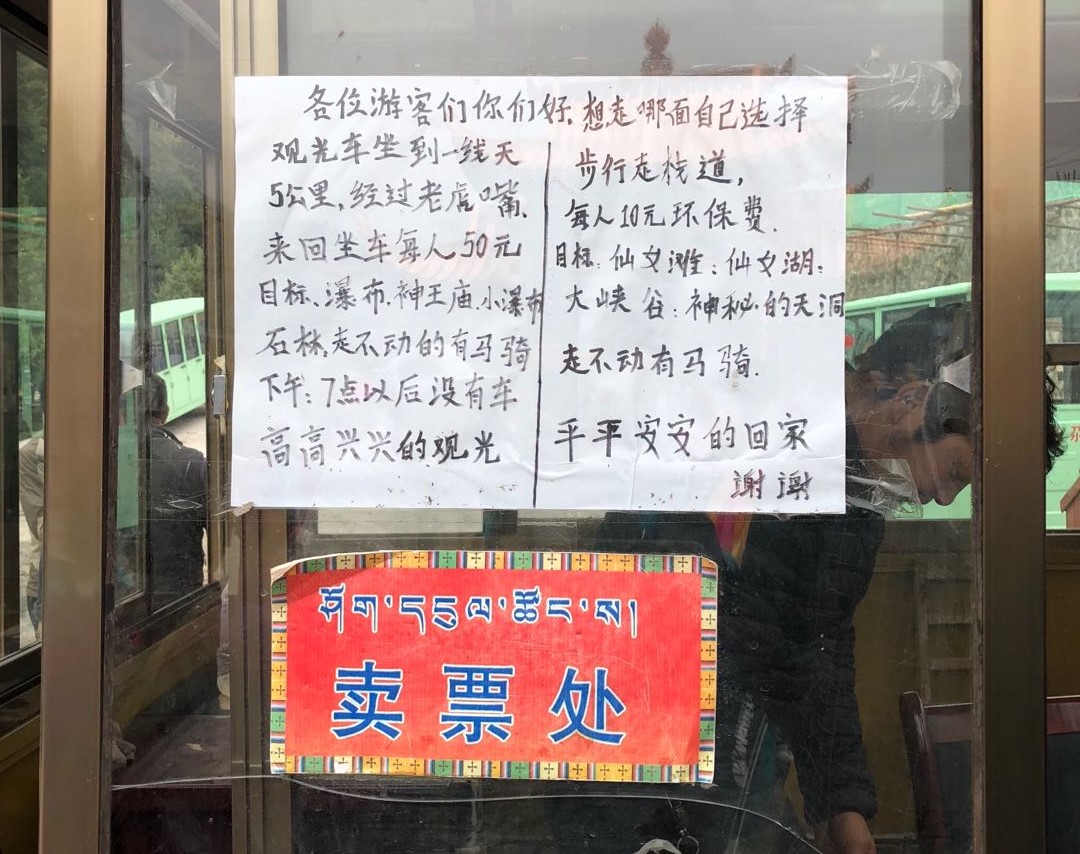 各位游客们你们好.想走哪面自己选择
观光车坐到一线天
5公里,经过老虎嘴、
来回坐车每人50元
目标、瀑布、神王庙、小瀑布
石林,走不动的有马骑
下午:7点以后没有车
高高兴兴的观光
步行走栈道,
每人10元环保费.
目标:仙女滩;仙女湖:
大峡谷:神秘的天洞
走不动有马骑.
平平安安的回家
谢谢
ཤོག་དངུལ་ཚོང་ས།
卖票处